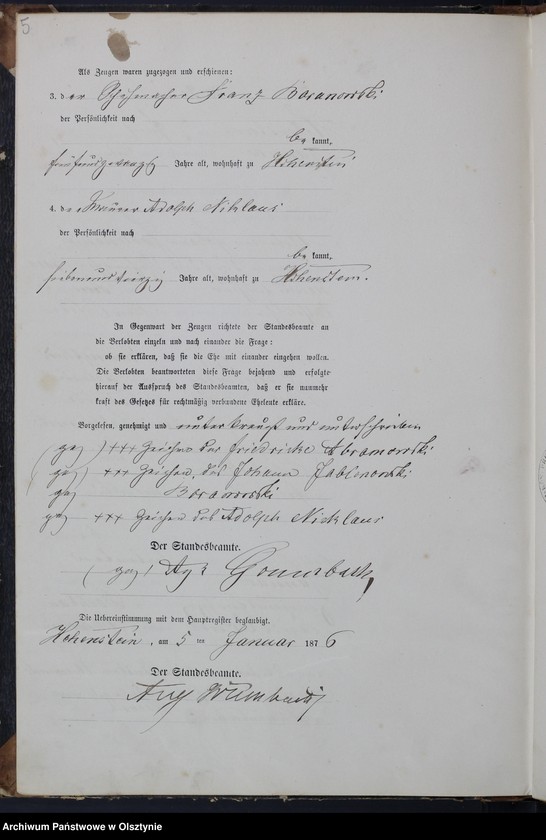 5
Als Zeugen waren zugezogen und erschienen:
3. der Schuhmacher Franz Baranowski
der Persönlichkeit nach
be kannt,
fünfundzwanzig Jahre alt, wohnhaft zu Hohenstein
4. der Maurer Adolph Niklaus
der Persönlichkeit nach
be kannt,
siebenundvierzig Jahre alt, wohnhaft zu Hohenstein.
In Gegenwart der Zeugen richtete der Standesbeamte an
die Verlobten einzeln und nach einander die Frage:
ob sie erklären, daß sie die Ehe mit einander eingehen wollen.
Die Verlobten beantworteten diese Frage bejahend und erfolgte
hierauf der Ausspruch des Standesbeamten, daß er sie nunmehr
kraft des Gesetzes für rechtmäßig verbundene Eheleute erkläre.
Vorgelesen, genehmigt und unterkreuzt und unterschrieben
(gez) +++ Zeichen der Friedricke Abramowski
(gez) +++ Zeichen des Johann Jablonowski
gez Baranowski
gez +++ Zeichen des Adolph Nicklaus
Der Standesbeamte.
(gez)
Die Uebereinstimmung mit dem Hauptregister beglaubigt.
Hohenstein, am 5 ten Januar 1876
Der Standesbeamte.
Archiwum Państwowe w Olsztynie